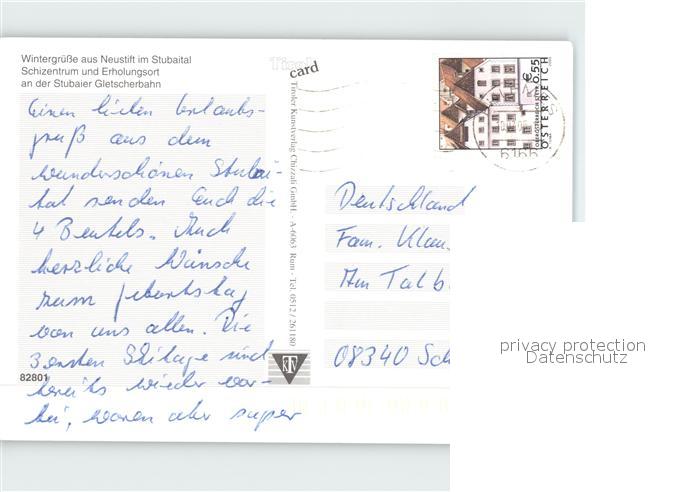 Wintergrüße aus Neustift im Stubaital
Schizentrum und Erholungsort
an der Stubaier Gletscherbahn
Tirol
card
Einen lieben Urlaubs-
gruß aus dem
wunderschönen Stubai-
tal senden Euch die
4 Beutels. Auch
herzliche Wünsche
zum Geburtstag
von uns allen. Die
3 ersten Skitage sind
bereits wieder vor-
bei, waren aber super
82801
Tiroler Kunstverlag Chizzali GmbH. · A-6063 Rum · Tel. 0512 / 261180
KTV
€ 0,55
ÖSTERREICH
6166
Deutschland
Fam. Klau
Am Talb
08340 Sch
privacy protection
Datenschutz